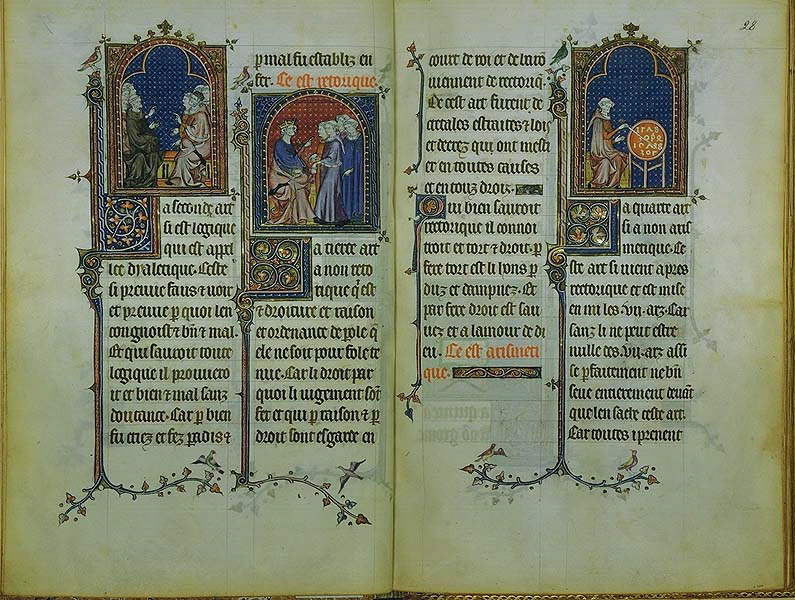 a seconde art
si est logique
qui est apel
lee dyaletique. Ceste
si preuue faus & uoir
et preuue p quoi len
congnoist & bn̄ & mal.
Et qui sauroit toute
logique il prouuero
it et bien & mal sanz
doutance. Car p bien
fu criez et fez padis &
p mal fu establiz en
fer. Ce est retorique
a tierce art
a non reto
rique q̄ est
& droiture et raison
et ordenance de pole q̄
ele ne soit pour fole te
nue. Car li droit par
quoi li iugement sōt
fet et qui p raison & p
droit sont esgarde en
court de roi et de barō
uiennent de rectoriq̄.
De cest art furent de
cretales estraites & lois
et decrez qui ont mesti
er en toutes causes
et en touz droiz.
Qui bien sauroit
rectorique il connoi
troit et tort & droit. p
fere tort est li hons p
duz et dampnez. Et
par fere droit est sau
uez et a lamour de di
eu. Ce est arismeti
que.
28
a quarte art
si a non aris
metique. Ce
ste art si uient apres
rectorique et est mise
en mi les .vii. arz. Car
sanz li ne puet estre
nulle des .vii. arz assi
se pfaitement ne bn̄
seue entierement deuāt
que len sache ceste art.
Car toutes i prenent